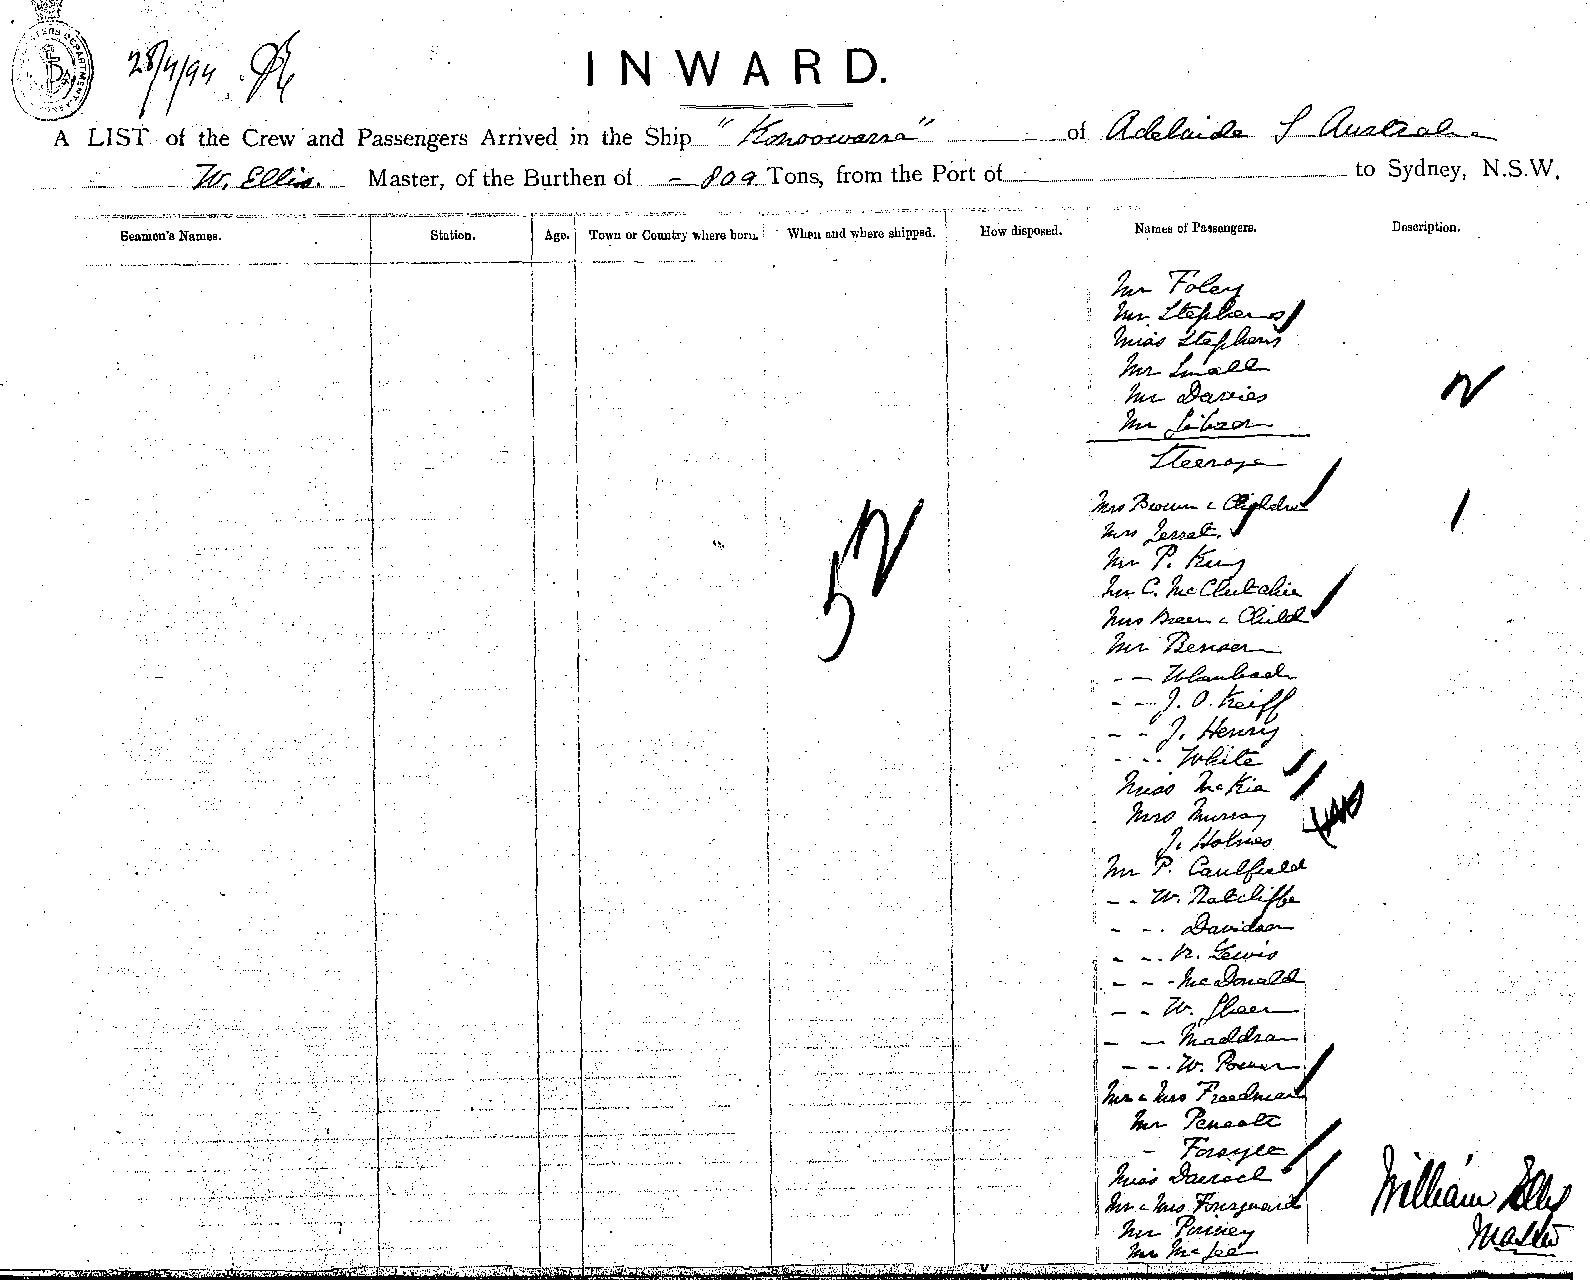 28/4/94
INWARD.
A LIST of the Crew and Passengers Arrived in the Ship "Konoowarra" of Adelaide S Australia
W. Ellis. Master, of the Burthen of - 809 Tons, from the Port of to Sydney, N.S.W.
Seamen's Names. Station. Age. Town or Country where born. When and where shipped. How disposed. Names of Passengers. Description.
Mr Foley
Mr Stephens
Miss Stephens
Mr Small
Mr Davies
Mr Gibson
Steerage
Mrs Brown & Children
Mrs Jerrat.
Mr P. King
Mr C. McClutchie
Mrs Breen & Child
Mr Benson
- - 
- - J. O. Keiff
- - J. Henry
- - White
Miss McKia
Mrs Murray
J. Holmes
Mr P. Caulfield
- - W. Ratcliffe
- - Davidson
- - R. Lewis
- - McDonald
- - W. Sheer
- - Maddran
- - W. Power
Mr & Mrs Freedman
Mr
- Forsyee
Miss Darroch
Mr & Mrs
Mr
Mr McGee
52
William Ellis
Master